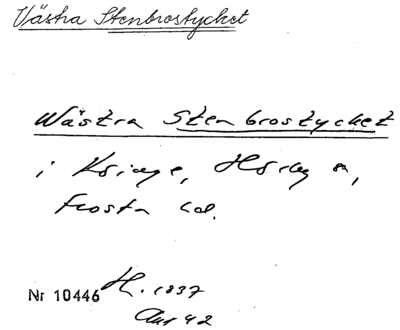 Västra Stenbrostycket
Wästra Stenbrostycket
i Hörby sn,
Frosta hd.
Nr 10446 H. 1837
42